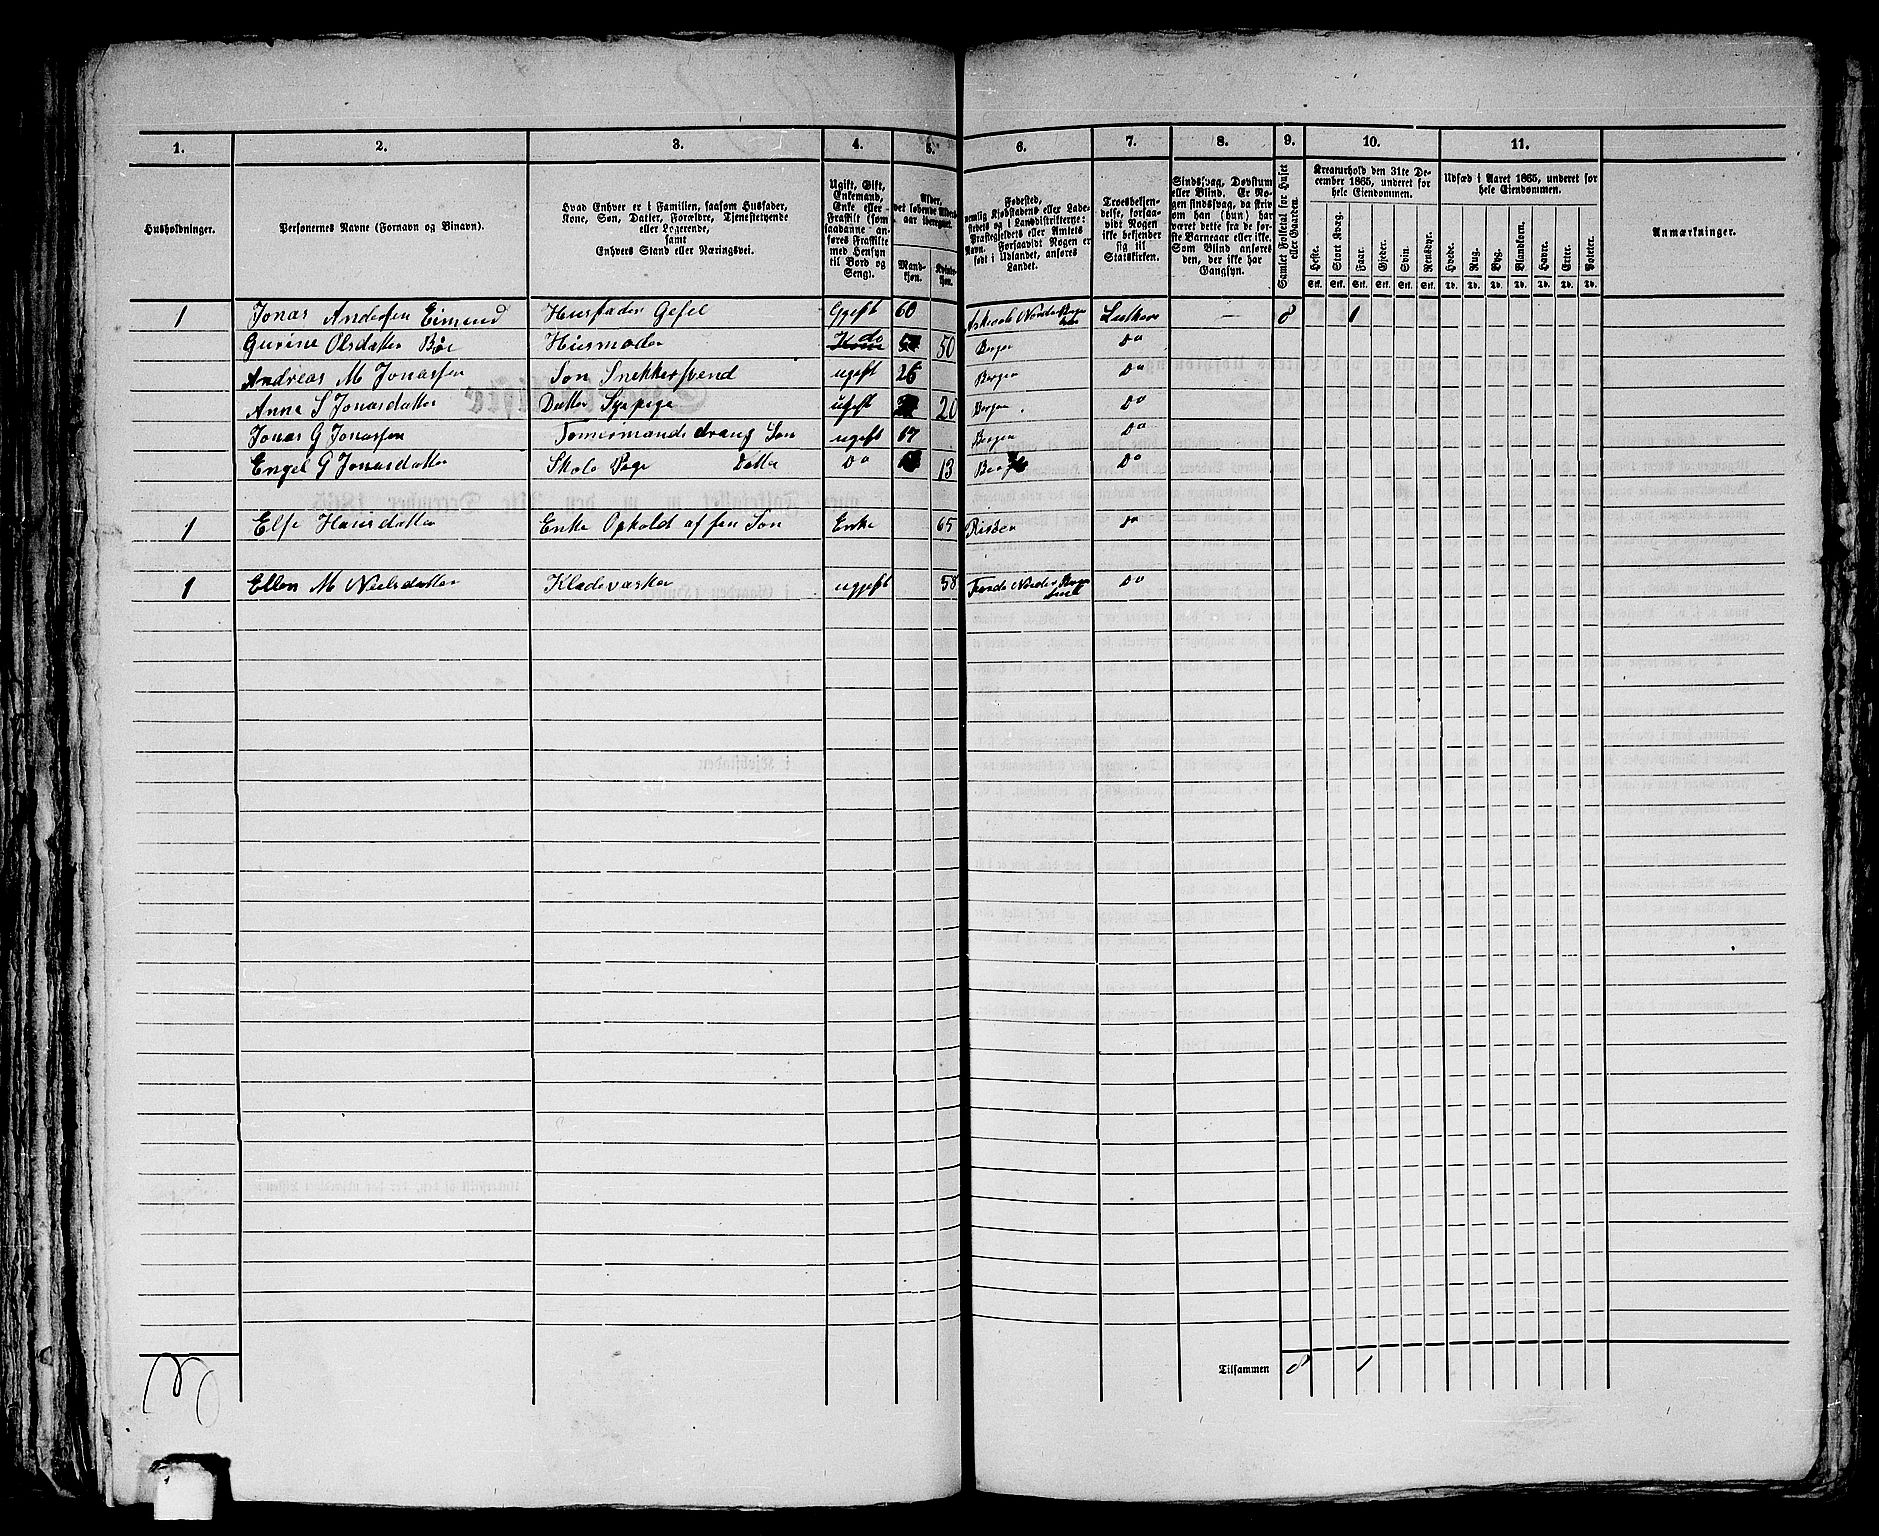 1. 2. 3. 4. 5. 6. 7. 8. 9. 10. 11.
Husholdninger.
Personernes Navne (Fornavn og Binavn).
Hvad Enhver er i Familien, saasom Husfader,
Kone, Søn, Datter, Forældre, Tjenestetyende
eller Logerende,
samt
Enhvers Stand eller Næringsvei.
Ugift, Gift,
Enkemand,
Enke eller
Fraskilt (som
saadanne anføres Fraskilte
med Hensyn
til Bord og
Seng).
Alder,
det løbende Alders-
aar iberegnet.
Mand-
kjøn.
Kvinde-
kjøn.
Fødested,
nemlig Kjøbstadens eller Lade-
stedets og i Landdistrikterne:
Præstegjeldets eller Amtets
Navn. Forsaavidt Nogen er
født i Udlandet, anføres
Landet.
Troesbekjen-
delse, forsaa-
vidt Nogen
ikke bekjender
sig til
Statskirken.
Sindssvag, Døvstum
eller Blind. Er No-
gen sindssvag, da skriv
om han (hun) har
været dette fra de før-
ste Barneaar eller ikke.
Som Blind anføres
den, der ikke har
Gangsyn.
Samlet Folketal for Huset
eller Gaarden.
Kreaturhold den 31te De-
cember 1865, underet for
hele Eiendommen.
Heste. Stort Kvæg. Faar. Gjeder. Svin. Rensdyr.
Stk. Stk. Stk. Stk. Stk. Stk.
Udsæd i Aaret 1865, underet for
hele Eiendommen.
Hvede. Rug. Byg. Blandkorn. Havre. Erter. Poteter.
Td. Td. Td. Td. Td. Td. Td.
Anmærkninger.
1 Jonas Andersen Eimund Husfader Gesel Ggeft 60 Askevold Nordre Luthers — 8 1
Gurine Olsdatter Bøe Husmoder do 50 Bergen Do
Andreas M Jonassen Son Snekkersvend ugeft 26 Bergen Do
Anne S Jonasdatter Datter Sypige ugeft 20 Bergen Do
Jonas G Jonassen Tomermands drang Son ugeft 17 Bergen Do
Engel G Jonasdatter Skole Pige Datter Do 13 Bergen Do
1 Else Hansdatter Enke Ophold af sen Son Enke 65 Do
1 Ellen M Nielsdatter Kladevasker ugjeft 58 Do
Tilsammen 8 1